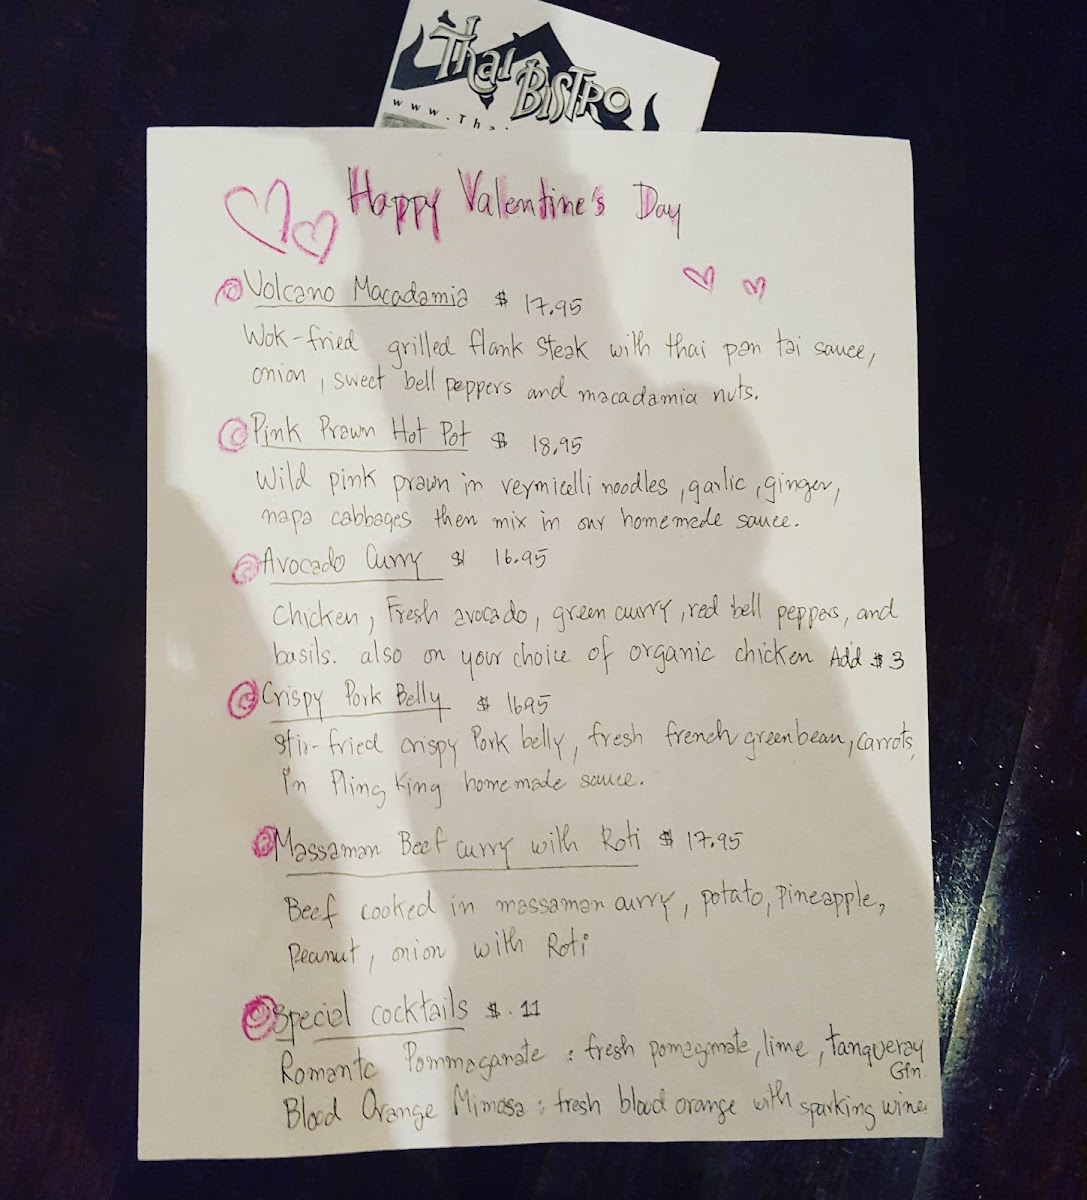 Thai Bistro
www.Thai
Happy Valentine's Day
Volcano Macadamia $ 17.95
Wok-fried grilled flank steak with thai pan tai sauce,
onion, sweet bell peppers and macadamia nuts.
Pink Prawn Hot Pot $ 18.95
Wild pink prawn in vermicelli noodles, garlic, ginger,
napa cabbages then mix in our homemade sauce.
Avocado Curry $ 16.95
Chicken, Fresh avocado, green curry, red bell peppers, and
basils. also on your choice of organic chicken Add $3
Crispy Pork Belly $ 1695
Stir-fried crispy Pork belly, fresh french greenbean, carrots,
in Pling King homemade sauce.
Massaman Beef curry with Roti $ 17.95
Beef cooked in massaman curry, potato, Pineapple,
Peanut, onion with Roti
Special cocktails $.11
Romantc Pommaganate : fresh pomegonate, lime, tanqueray
Gin.
Blood Orange Mimosa : fresh blood orange with sparking wine.